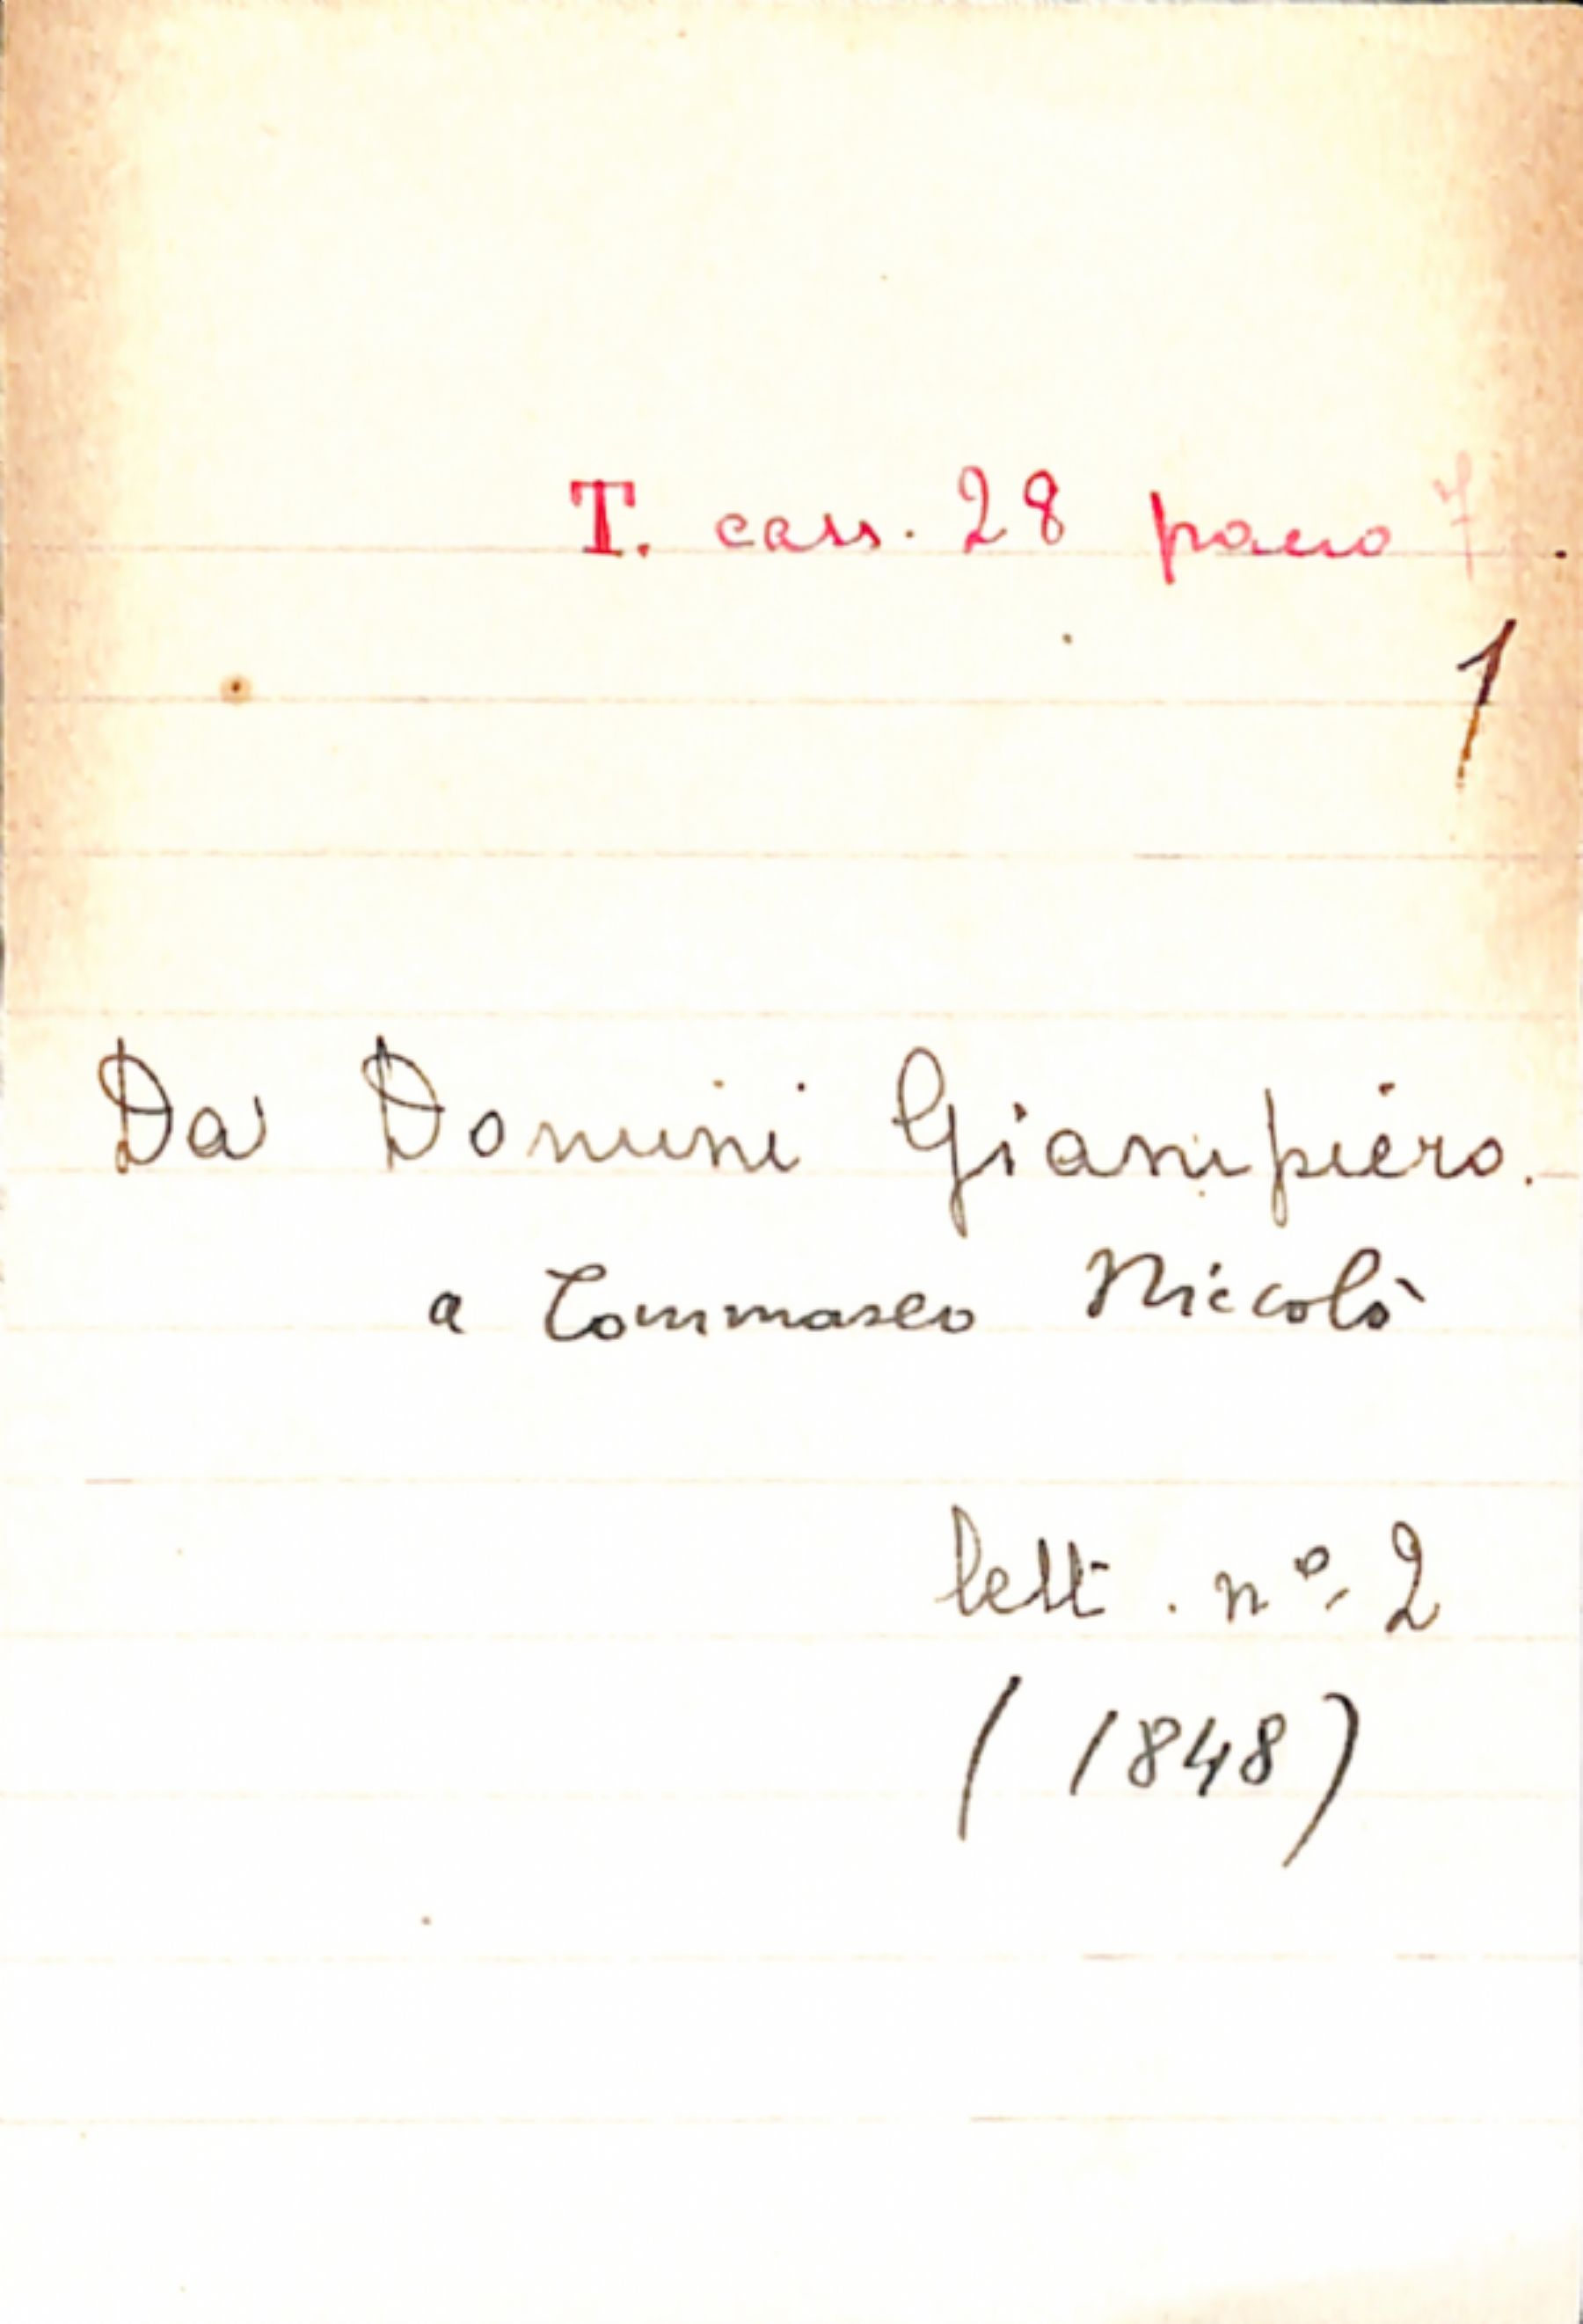 T. cass. 28 pacco 7
1
Da Domini Giampiero.
a Tommaseo Niccolò
lett. nº 2
(1848)